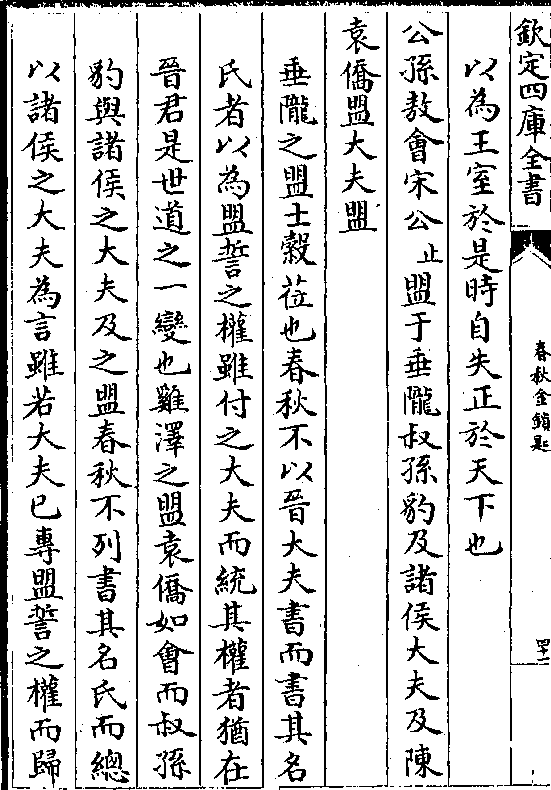 欽定四庫全書
春秋金鎖匙
四十一
以為王室於是時自失正於天下也
公孫敖會宋公止盟于垂隴叔孫豹及諸侯大夫及陳
袁僑盟大夫盟
垂隴之盟士縠莅也春秋不以晉大夫書而書其名
氏者以為盟誓之權雖付之大夫而統其權者猶在
晉君是世道之一變也雞澤之盟袁僑如會而叔孫
豹與諸侯之大夫及之盟春秋不列書其名氏而總
以諸侯之大夫為言雖若大夫已專盟誓之權而歸